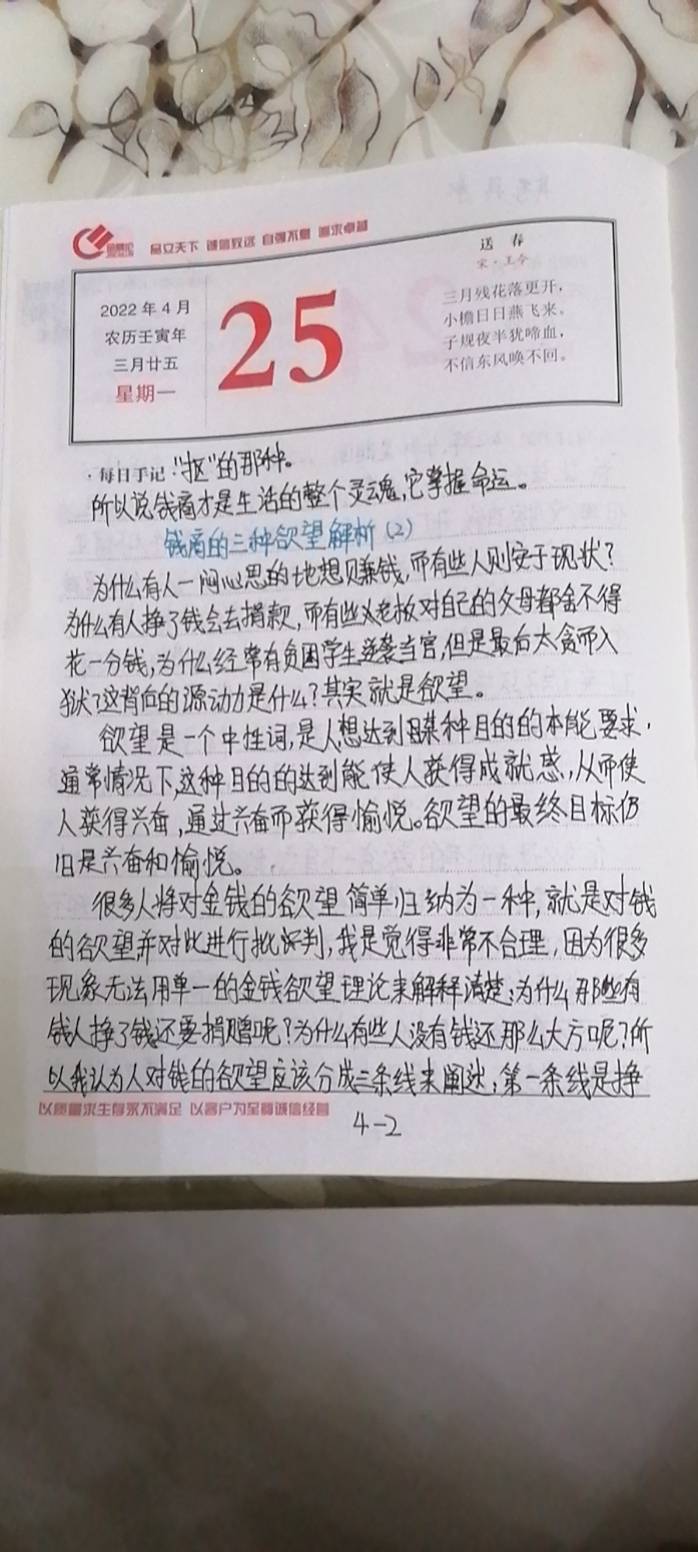 品立天下 诚信致远 自强不息 追求卓越
送 春
宋·王令
2022年4月
农历壬寅年
三月廿五
星期一
25
三月残花落更开，
小檐日日燕飞来。
子规夜半犹啼血，
不信东风唤不回。
·每日手记："抠"的那种。
所以说钱商才是生活的整个灵魂，它掌握命运。
钱商的三种欲望解析（2）
为什么有人一门心思的地想赚钱，而有些人则安于现状？
为什么有人挣了钱会去捐款，而有些老板对自己的父母都舍不得
花一分钱，为什么经常有贫困学生逆袭当官，但是最后太贪而入
狱？这背后的源动力是什么？其实就是欲望。
欲望是一个中性词，是人想达到某种目的的本能要求，
通常情况下，这种目的的达到能使人获得成就感，从而使
人获得兴奋，通过兴奋而获得愉悦。欲望的最终目标仍
旧是兴奋和愉悦。
很多人将对金钱的欲望简单归纳为一种，就是对钱
的欲望并对此进行批评判，我是觉得非常不合理，因为很多
现象无法用单一的金钱欲望理论来解释清楚：为什么那些有
钱人挣了钱还要捐赠呢？为什么有些人没有钱还那么大方呢？所
以我认为人对钱的欲望应该分成三条线来阐述，第一条线是挣
以质量求生存永不满足 以客户为至尊诚信经营
4-2